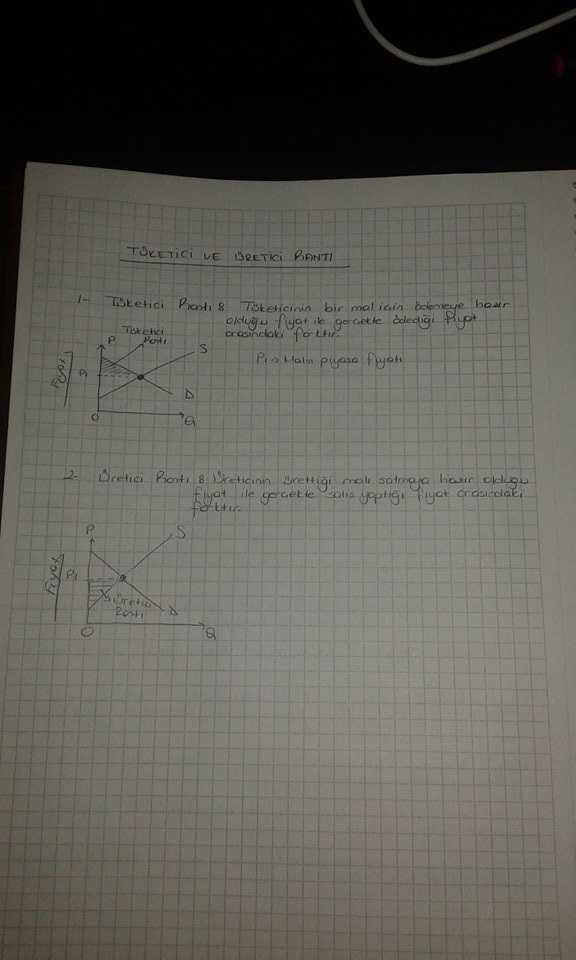 TÜKETİCİ VE ÜRETİCİ RANTI
1- Tüketici Rantı : Tüketicinin bir mal için ödemeye hazır
olduğu fiyat ile gerçekte ödediği fiyat
arasındaki farktır.
Tüketici
Rantı
P
S
Fiyat
P1
P1 → Malın piyasa fiyatı
D
O
Q
2- Üretici Rantı : Üreticinin ürettiği malı satmaya hazır olduğu
fiyat ile gerçekte satış yaptığı fiyat arasındaki
farktır.
P
S
Fiyat
P1
Üretici
Rantı
D
O
Q